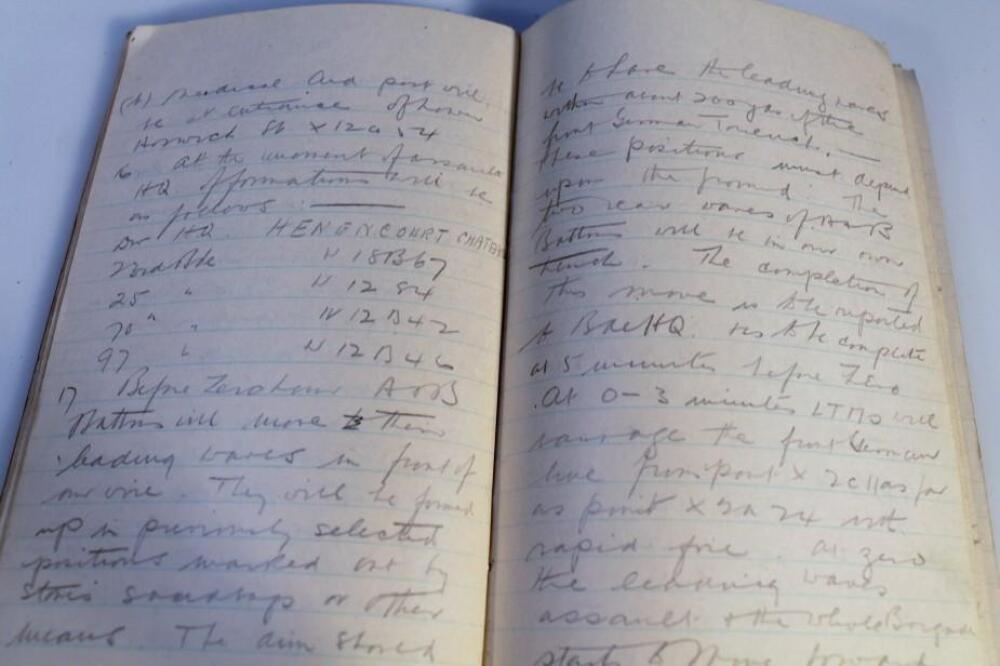 (b) Medical Aid post will
be at entrance of Lower
Horwich St X 12 a 3.4
16 At the moment of assault
HQ of formations will be
as follows
Div HQ. HENENCOURT CHATEAU
23rd Bde N 18 B 67
25 " N 12 84
70 " " N 12 B 42
97 " N 12 B 46
17 Before Zero hour A & B
Battns will move their
leading waves in front of
our wire. They will be formed
up in previously selected
positions marked out by
sandbags or other
means. The aim should
be to have the leading waves
within about 200 yds of the
front German Trench.
These positions must depend
upon the ground. The
two rear waves of A & B
Battns will be in our own
trench. The completion of
this move is to be reported
to Bde HQ. to be complete
at 5 minutes before Zero
At 0-3 minutes LTMs will
the front German
line from point X 2 c 11 as far
as point X 2 a 24 with
rapid fire. At zero
the leading waves
assault & the whole Brigade
starts to move forward